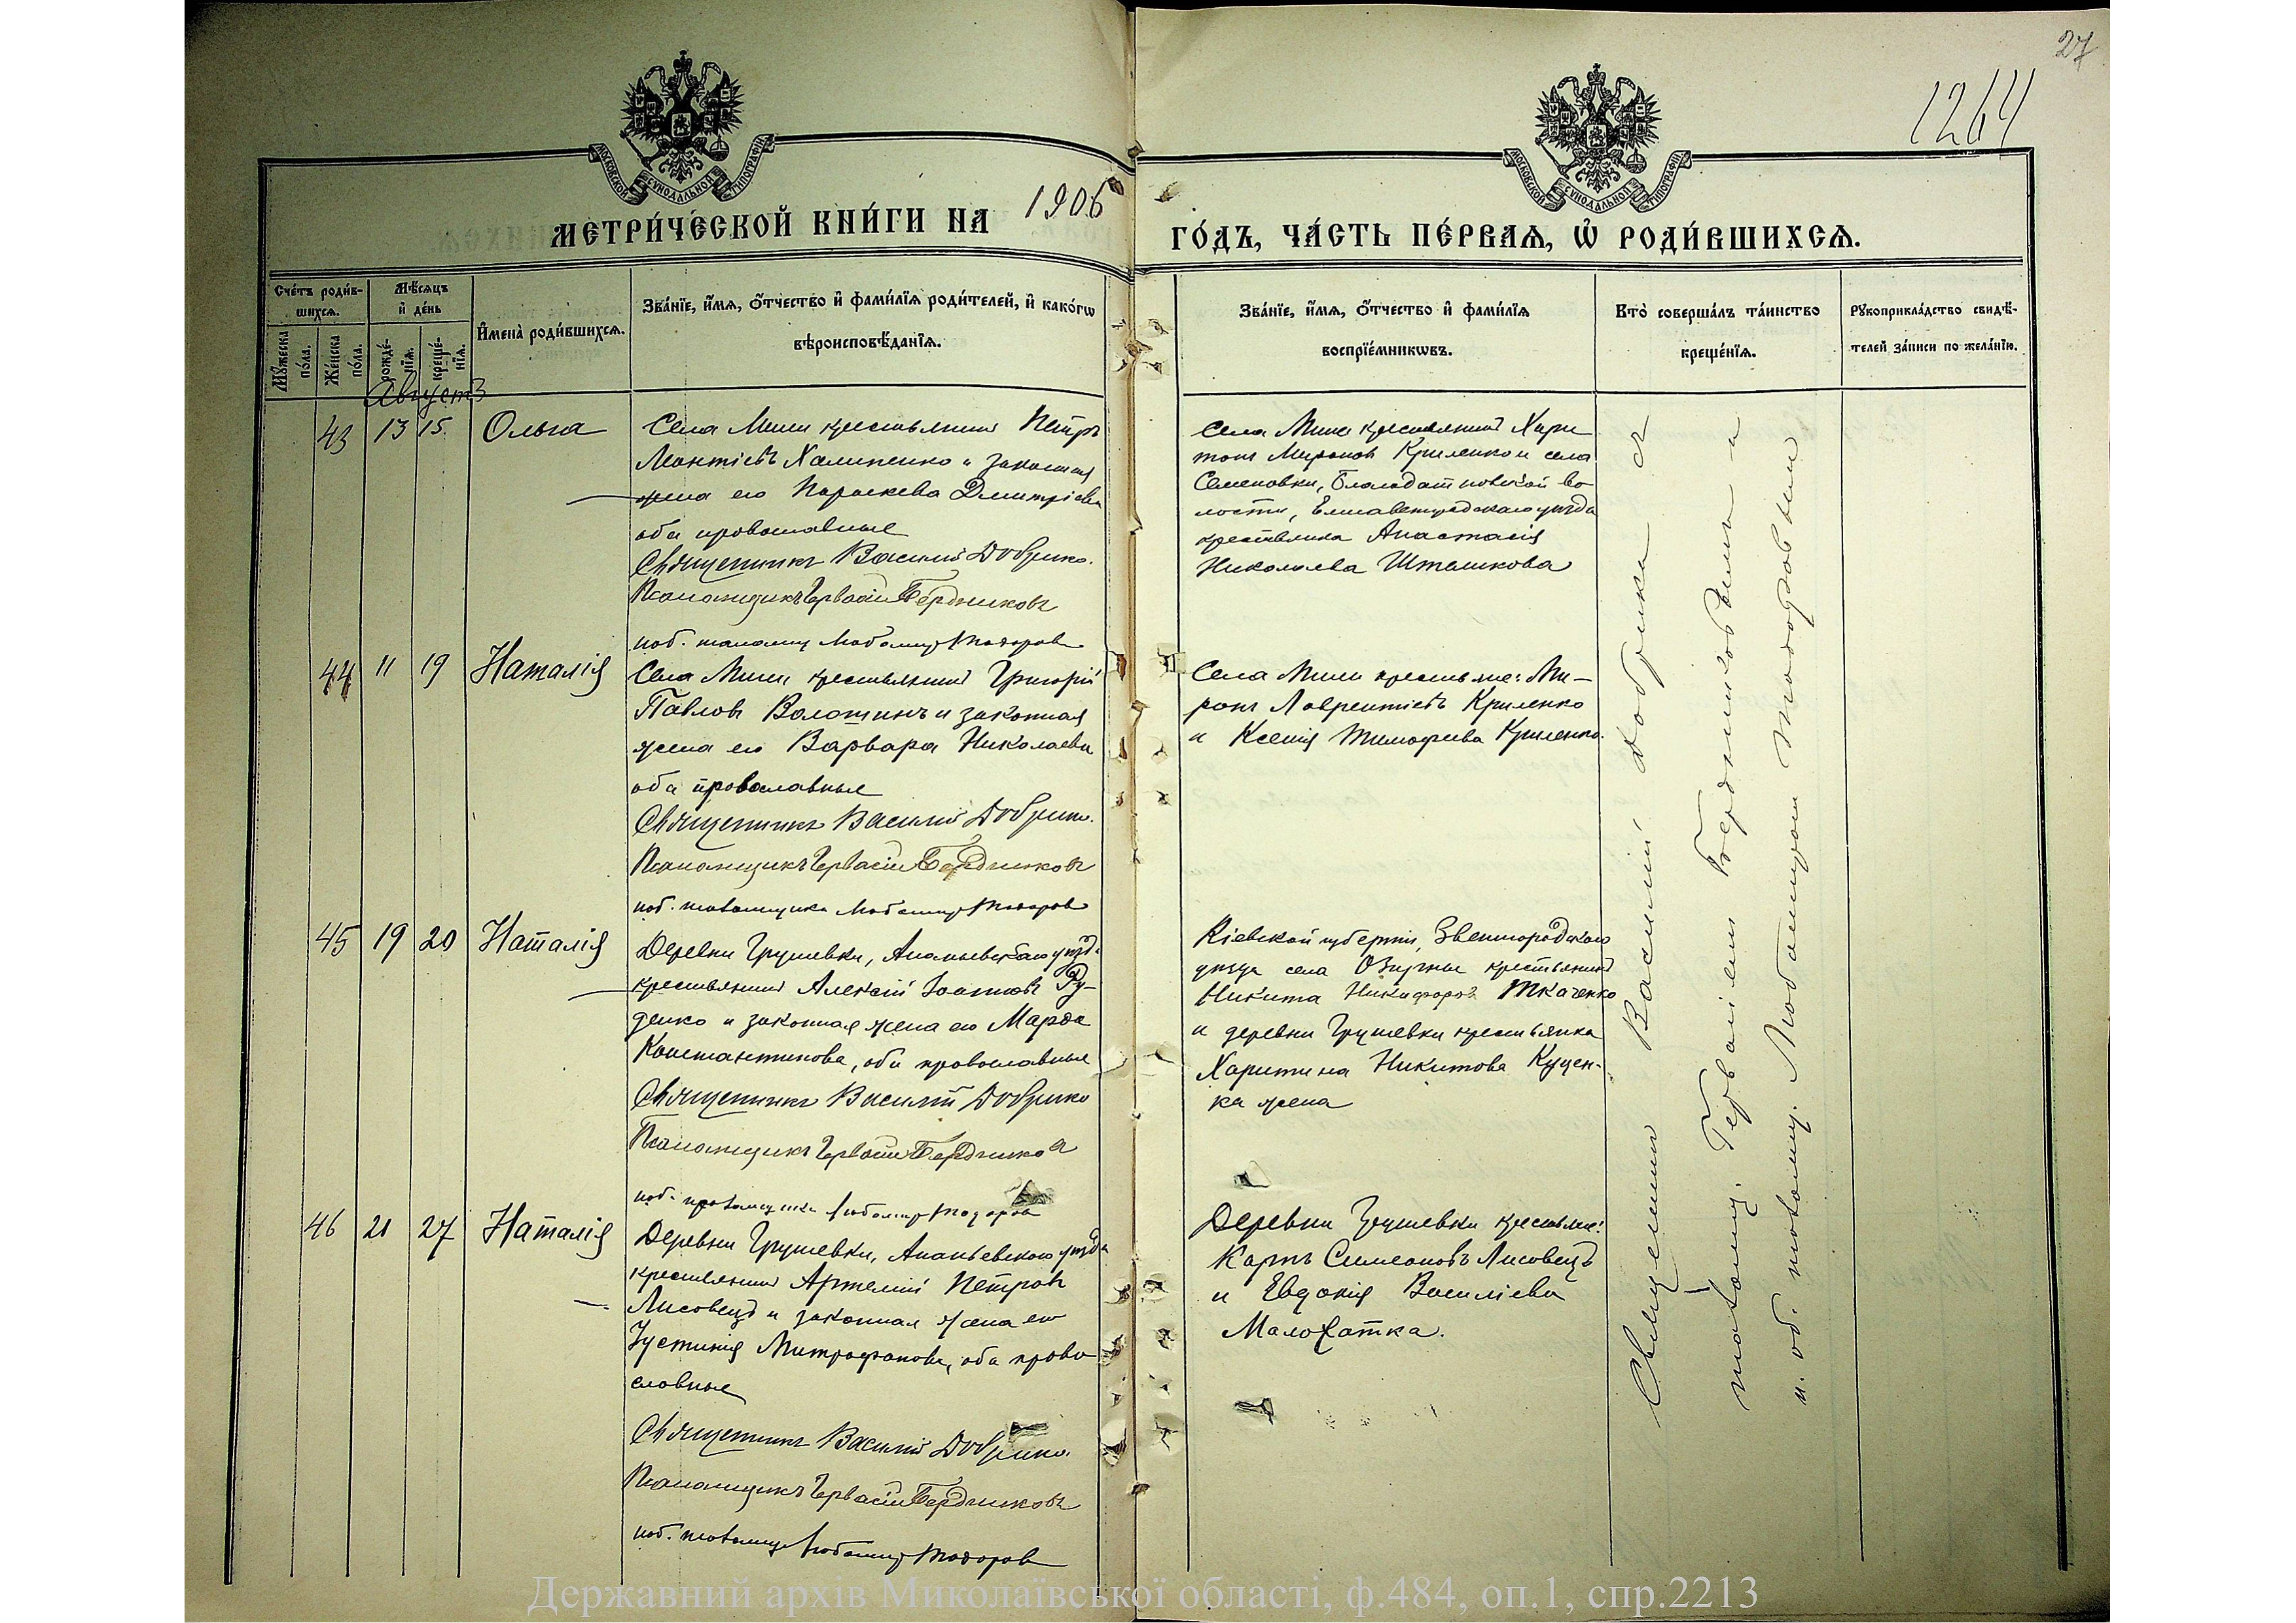 27
1264
МОСКОВСКОЙ СѴНОДАЛЬНОЙ ТИПОГРАФІИ
МОСКОВСКОЙ СѴНОДАЛЬНОЙ ТИПОГРАФІИ
МЕТРИ́ЧЕСКОЙ КНИ́ГИ НА 1906
ГО́ДЪ, ЧА́СТЬ ПЕ́РВАѦ, Ѽ РОДИ́ВШИХСѦ.
Сче́тъ роди́в-
шихсѧ.
Мѹ́жеска по́ла.
Же́нска по́ла.
Мѣ́сѧцъ
и҆ де́нь
рожде́-
нїѧ.
креще́-
нїѧ.
И҆мена̀ роди́вшихсѧ.
Зва́нїе, и҆́мѧ, ѻ҆́тчество и҆ фами́лїѧ роди́телей, и҆ како́гѡ
вѣроисповѣ́данїѧ.
Зва́нїе, и҆́мѧ, ѻ҆́тчество и҆ фами́лїѧ
воспрїе́мникѡвъ.
Кто̀ соверша́лъ та́инство
креще́нїѧ.
Рѹкоприкла́дство свидѣ́-
телей за́писи по жела́нїю.
Августъ
43 13 15 Ольга
Села Мигеи крестьянинъ Петръ
Леонтіевъ Халипенко и законная
жена его Параскева Димитріева
оба православные
Священникъ Василій Добрико.
Псаломщикъ Гервасій Бердниковъ
и об. псаломщ. Любомиръ Тодоровъ
Села Мигеи крестьянинъ Хари
тонъ Мироновъ Криленко и села
Семеновки, Благодатновской во
лости, Елисаветградскаго уѣзда
крестьянка Анастасія
Николаева Шташкова
44 11 19 Наталія
Села Мигеи крестьянинъ Григорій
Павловъ Волошинъ и законная
жена его Варвара Николаева
оба православные
Священникъ Василій Добрико.
Псаломщикъ Гервасій Бердниковъ
и об. псаломщика Любомиръ Тодоровъ
Села Мигеи крестьяне: Ми-
ронъ Лаврентіевъ Криленко
и Ксенія Тимофеева Криленко.
45 19 20 Наталія
Деревни Грушевки, Ананьевскаго уѣзда
крестьянинъ Алексій Іоанновъ Ру-
денко и законная жена его Марѳа
Константинова, оба православные
Священникъ Василій Добрико
Псаломщикъ Гервасій Бердниковъ
и об. псаломщика Любомиръ Тодоровъ
Кіевской губерніи, Звенигородскаго
уѣзда села Озирные крестьянинъ
Никита Никифоровъ Ткаченко
и деревни Грушевки крестьянка
Харитина Никитова Куцен-
ка жена
46 21 27 Наталія
Деревни Грушевки, Ананьевскаго уѣзда
крестьянинъ Артемій Петровъ
Лисовецъ и законная жена его
Іустинія Митрофанова, оба право
славные
Священникъ Василій Добрико.
Псаломщикъ Гервасій Бердниковъ
и об. псаломщ. Любомиръ Тодоровъ
Деревни Грушевки крестьяне:
Карпъ Симеоновъ Лисовецъ
и Евдокія Василіева
Малохатка.
Священникъ Василій Добрико съ
псаломщ. Гервасіемъ Бердниковымъ и
и. об. псаломщ. Любомиромъ Тодоровымъ
Державний архів Миколаївської області, ф.484, оп.1, спр.2213